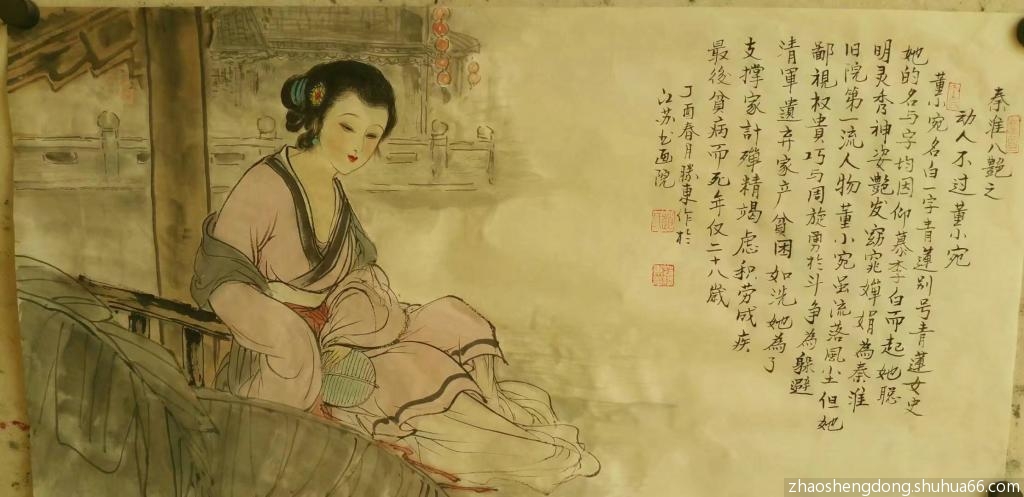 秦淮八艷之
动人不过董小宛
董小宛名白一字青蓮别号青蓮女史
她的名与字均因仰慕李白而起她聪
明灵秀神姿艷发窈窕嬋娟為秦淮
旧院第一流人物董小宛虽流落風尘但她
鄙視权贵巧与周旋勇於斗争為躲避
清軍遺弃家产貧困如洗她為了
支撑家計殫精竭虑积劳成疾
最後貧病而死年仅二十八歲
丁酉春月勝東作於
江苏书画院
zhaoshengdong.shuhua66.com